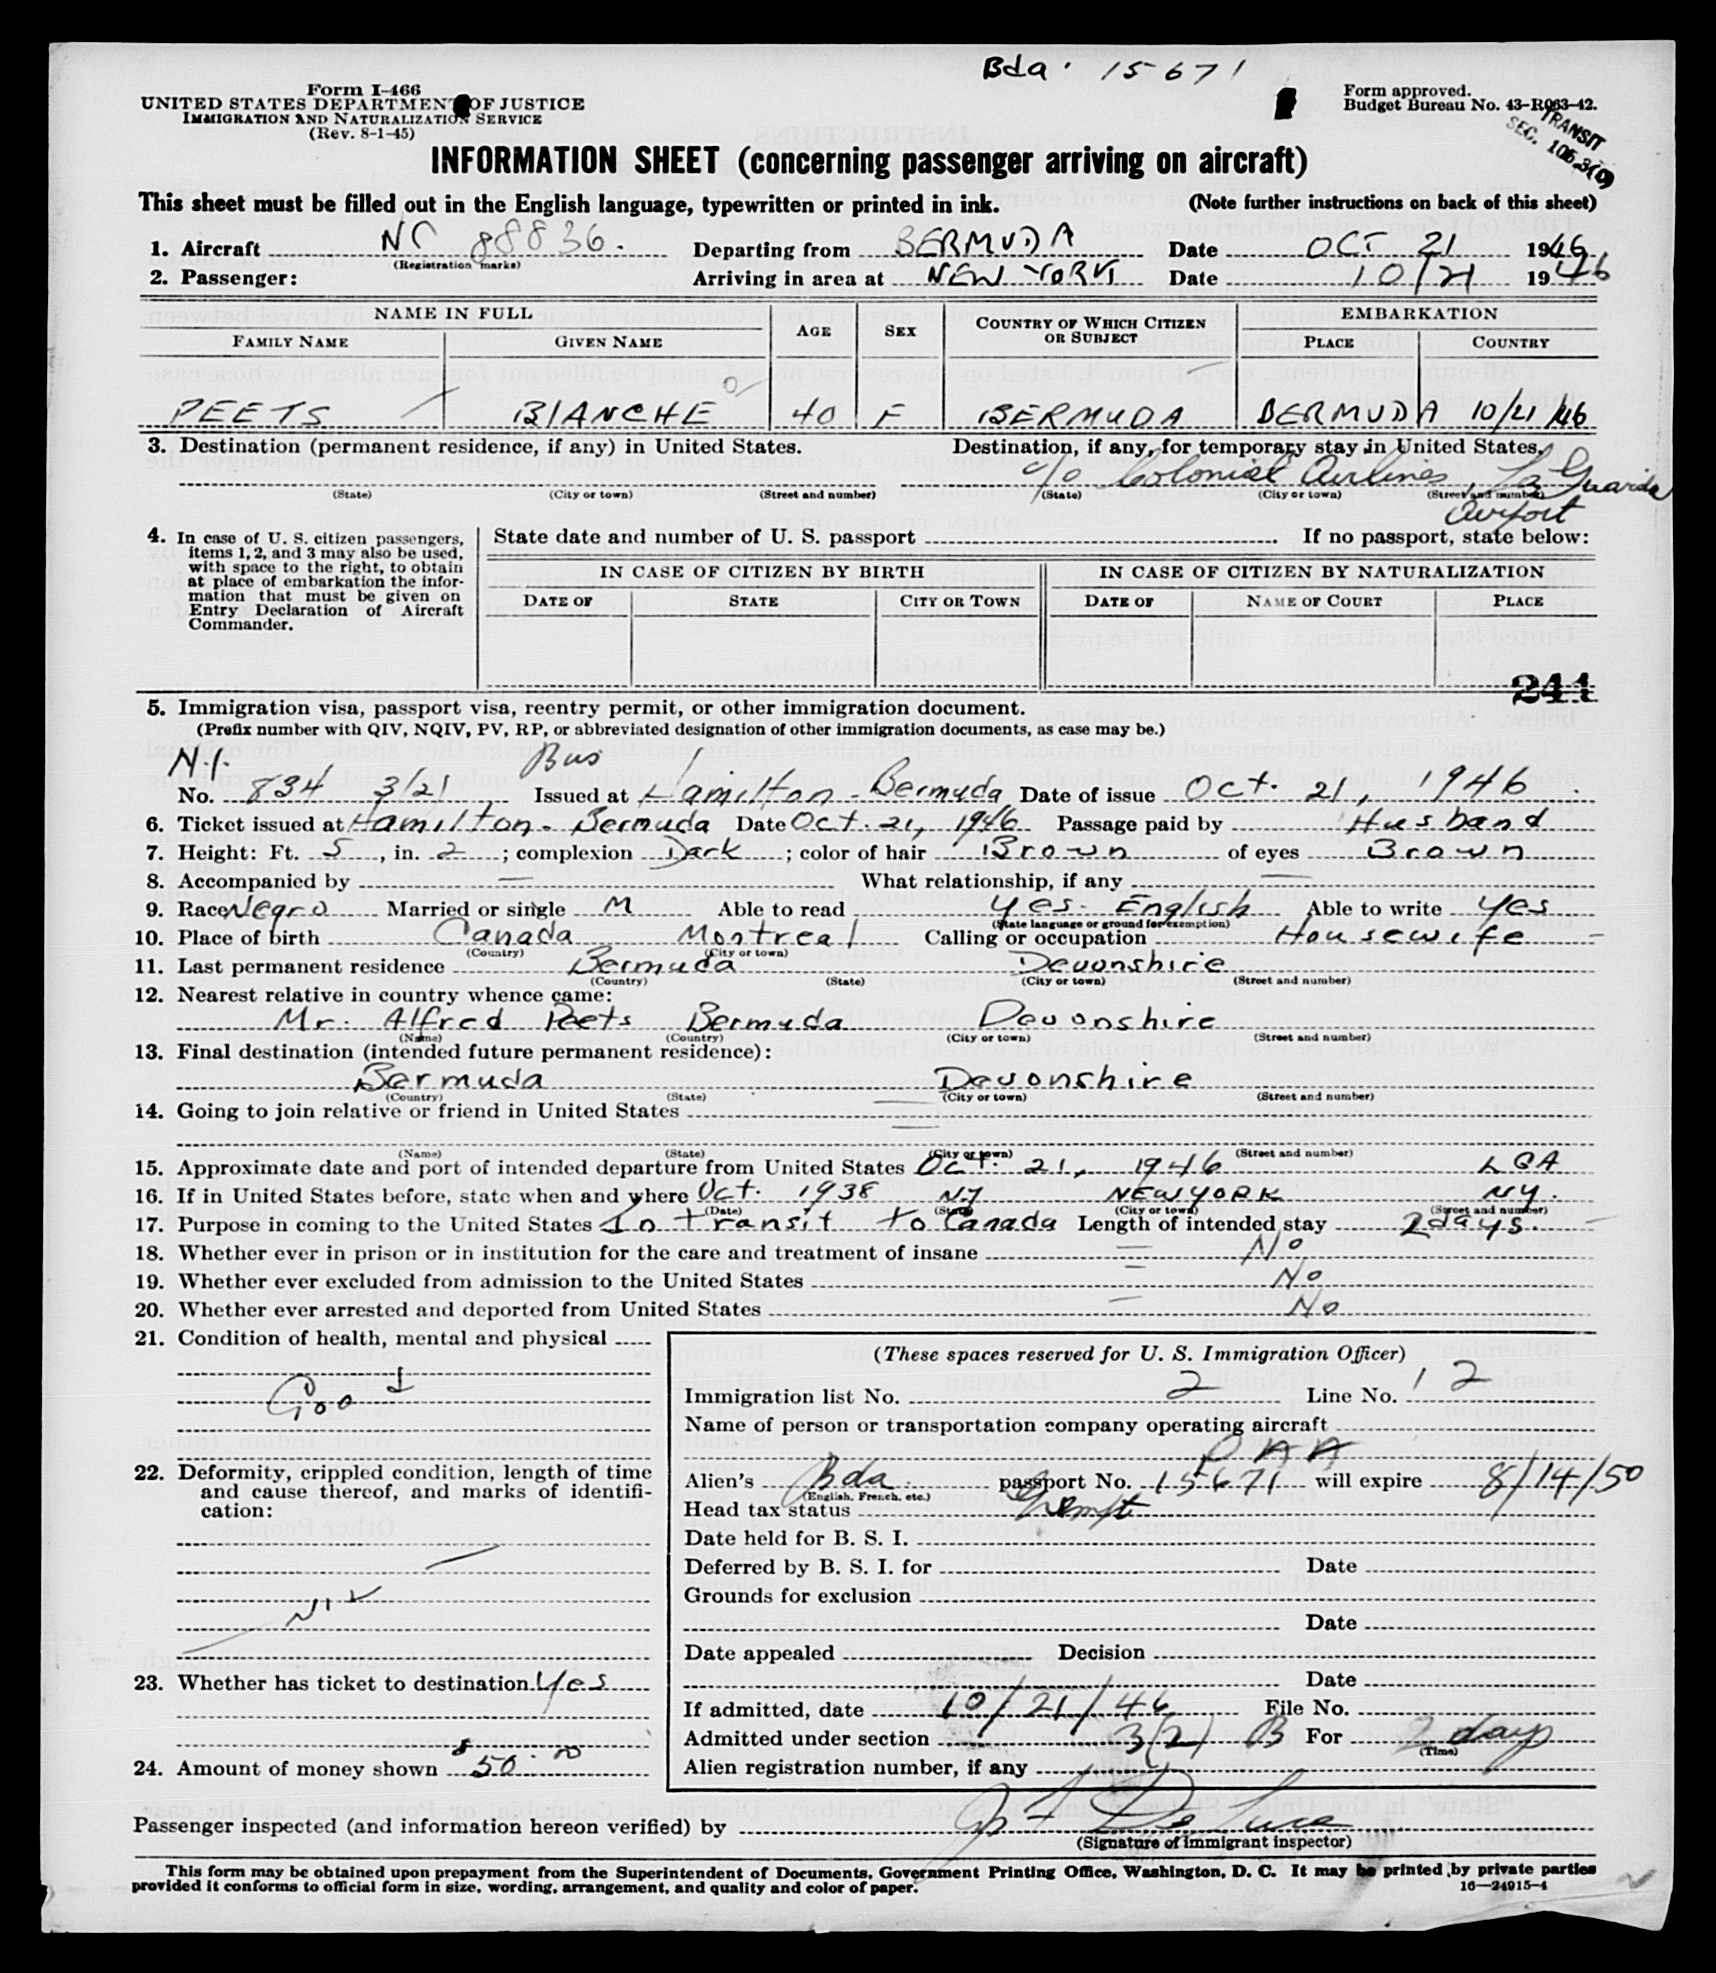 Bda. 15671
Form I-466
UNITED STATES DEPARTMENT OF JUSTICE
IMMIGRATION AND NATURALIZATION SERVICE
(Rev. 8-1-45)
Form approved.
Budget Bureau No. 43-R063-42.
TRANSIT
SEC. 105.3(c)
INFORMATION SHEET (concerning passenger arriving on aircraft)
This sheet must be filled out in the English language, typewritten or printed in ink. (Note further instructions on back of this sheet)
1. Aircraft NC 88836. Departing from BERMUDA Date OCT 21 1946
(Registration marks)
2. Passenger: Arriving in area at NEW YORK Date 10/21 1946
NAME IN FULL AGE SEX COUNTRY OF WHICH CITIZEN OR SUBJECT EMBARKATION
FAMILY NAME GIVEN NAME PLACE COUNTRY
PEETS BLANCHE 40 F BERMUDA BERMUDA 10/21/46
3. Destination (permanent residence, if any) in United States. Destination, if any, for temporary stay in United States.
c/o Colonial Airlines, La Guardia
(State) (City or town) (Street and number) (State) (City or town) (Street and number)
Airport
4. In case of U. S. citizen passengers, items 1, 2, and 3 may also be used, with space to the right, to obtain at place of embarkation the information that must be given on Entry Declaration of Aircraft Commander.
State date and number of U. S. passport If no passport, state below:
IN CASE OF CITIZEN BY BIRTH IN CASE OF CITIZEN BY NATURALIZATION
DATE OF STATE CITY OR TOWN DATE OF NAME OF COURT PLACE
244
5. Immigration visa, passport visa, reentry permit, or other immigration document.
(Prefix number with QIV, NQIV, PV, RP, or abbreviated designation of other immigration documents, as case may be.)
N.I. Bus
No. 834 3/2/ Issued at Hamilton - Bermuda Date of issue Oct. 21, 1946
6. Ticket issued at Hamilton - Bermuda Date Oct. 21, 1946 Passage paid by Husband
7. Height: Ft. 5, in. 2; complexion Dark; color of hair Brown of eyes Brown
8. Accompanied by — What relationship, if any —
9. Race Negro Married or single M Able to read yes. English Able to write yes
(State language or ground for exemption)
10. Place of birth Canada Montreal Calling or occupation Housewife
(Country) (City or town)
11. Last permanent residence Bermuda Devonshire
(Country) (State) (City or town) (Street and number)
12. Nearest relative in country whence came:
Mr. Alfred Peets Bermuda Devonshire
(Name) (Country) (City or town) (Street and number)
13. Final destination (intended future permanent residence):
Bermuda Devonshire
(Country) (State) (City or town) (Street and number)
14. Going to join relative or friend in United States —
—
(Name) (State) (City or town) (Street and number)
15. Approximate date and port of intended departure from United States Oct. 21, 1946 LGA
16. If in United States before, state when and where Oct. 1938 NY NEW YORK NY.
(Date) (State) (City or town) (Street and number)
17. Purpose in coming to the United States In transit to Canada Length of intended stay 2 days.
18. Whether ever in prison or in institution for the care and treatment of insane — No
19. Whether ever excluded from admission to the United States — No
20. Whether ever arrested and deported from United States — No
21. Condition of health, mental and physical
Good
22. Deformity, crippled condition, length of time and cause thereof, and marks of identification:
Nil
23. Whether has ticket to destination. Yes
24. Amount of money shown $50.00
(These spaces reserved for U. S. Immigration Officer)
Immigration list No. 2 Line No. 12
Name of person or transportation company operating aircraft
PAA
Alien's Bda. passport No. 15671 will expire 8/14/50
(English, French, etc.)
Head tax status Exempt
Date held for B. S. I.
Deferred by B. S. I. for Date
Grounds for exclusion
Date
Date appealed Decision
Date
If admitted, date 10/21/46 File No.
Admitted under section 3(2) B For 2 days
(Time)
Alien registration number, if any
Passenger inspected (and information hereon verified) by De Luca
(Signature of immigrant inspector)
This form may be obtained upon prepayment from the Superintendent of Documents, Government Printing Office, Washington, D. C. It may be printed by private parties
provided it conforms to official form in size, wording, arrangement, and quality and color of paper.
16—24915-4